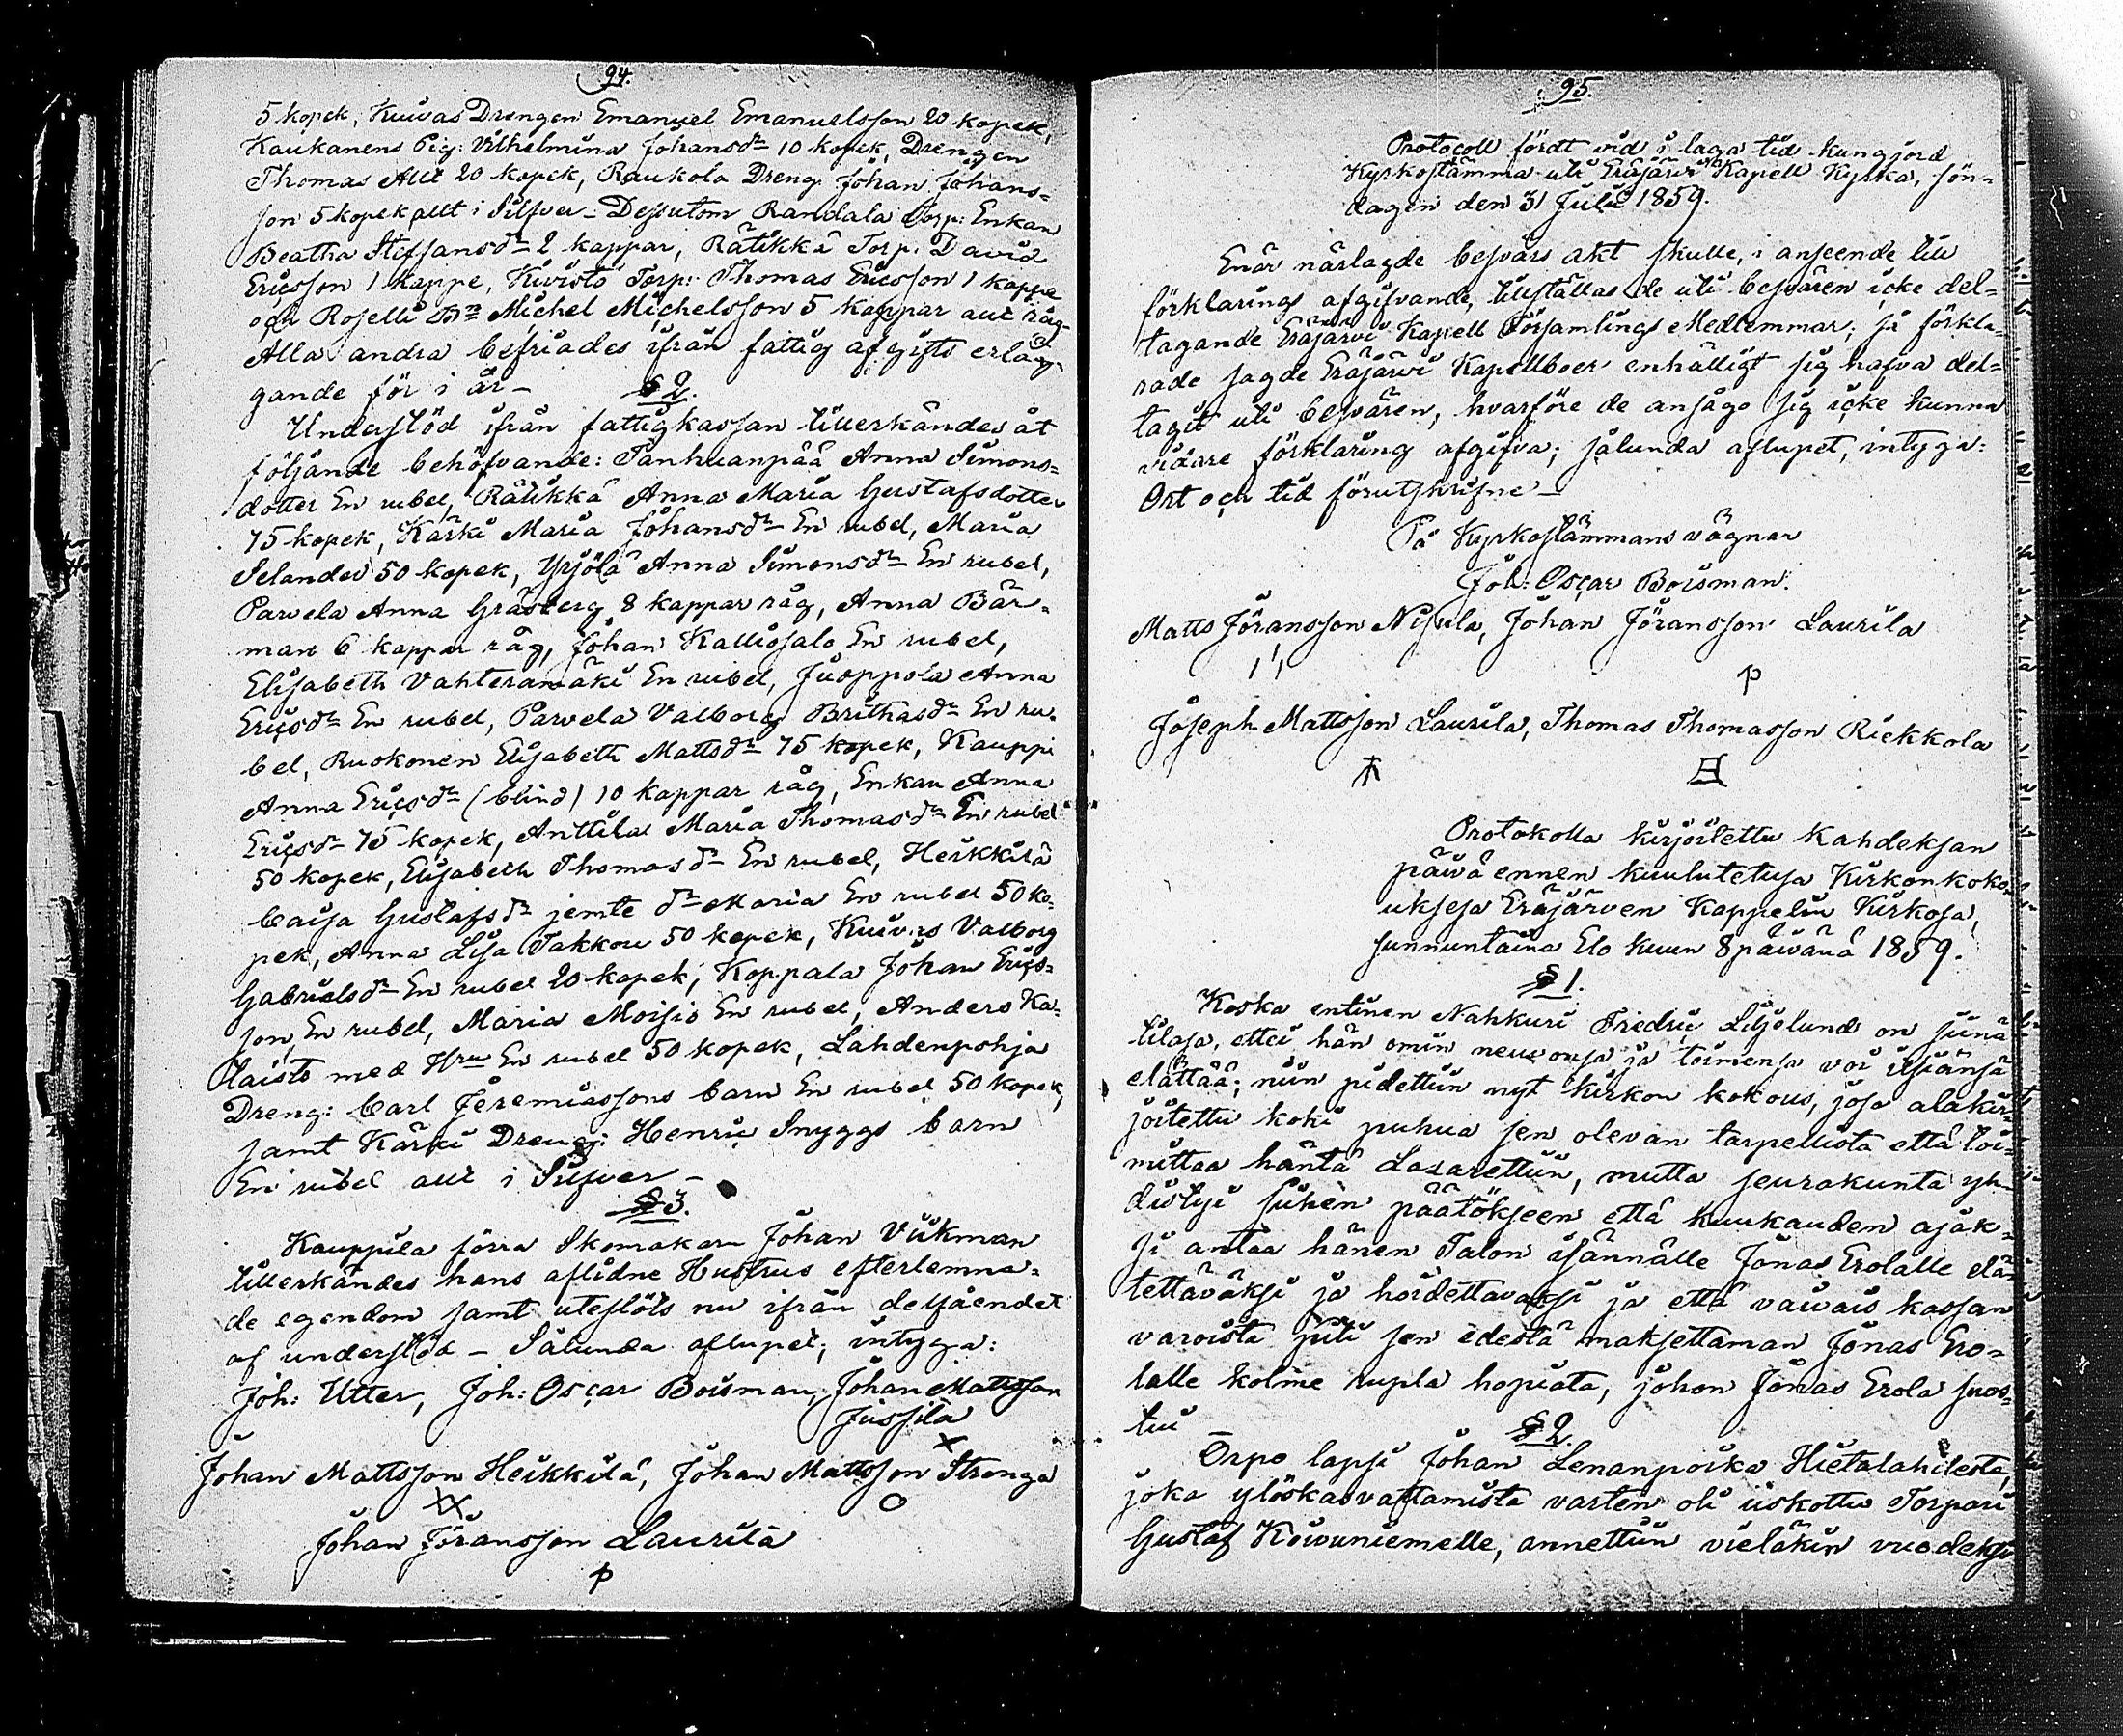 94.
5 kopek, Kuivas Drengen Emanuel Emanuelsson 20 kopek,
Kaukanens Pig: Vilhelmina Johansdr 10 kopek, Drengen
Thomas Alli 20 kopek, Raukola Dreng Johan Johans-
son 5 kopek allt i Silfver – Dessutom Randala Torp: Enkan
Beatha Steffansdr 2 kappar, Rätikkä Torp. David
Ericsson 1 kappe, Kivistö Torp: Thomas Ericsson 1 kappe
och Roselli Bn Michel Michelsson 5 kappar allt råg-
Alla andra befriades ifrån fattig afgifts erläg-
gande för i år –
§ 2.
Understöd ifrån fattigkassan tillerkändes åt
följande behöfvande: Tanhuanpää Anna Simons-
dotter En rubel, Rätikkä Anna Maria Gustafsdotter
75 kopek, Kärki Maria Johansdr En rubel, Maria
Selander 50 kopek, Yrjölä Anna Simonsdr En rubel,
Parvela Anna Gråsberg 8 kappar råg, Anna Bär-
man 6 kappar råg, Johan Kalliosalo En rubel,
Elisabeth Vahteramäki En rubel, Juoppola Anna
Ericsdr En rubel, Parvela Valborg Brithasdr En ru-
bel, Ruokonen Elisabeth Mattsdr 75 kopek, Kauppi
Anna Ericsdr (blind) 10 kappar råg, Enkan Anna
Ericsdr 75 kopek, Anttila Maria Thomasdr En rubel
50 kopek, Elisabeth Thomasdr En rubel, Heikkilä
Caisa Gustafsdr jemte dr Maria En rubel 50 ko-
pek, Anna Lisa Takkou 50 kopek, Kuivas Valborg
Gabrielsdr En rubel 20 kopek, Koppala Johan Erics-
son En rubel, Maria Moisio En rubel, Anders Ka-
laisto med Hru En rubel 50 kopek, Lahdenpohja
Dreng: Carl Jeremiassons barn En rubel 50 kopek,
samt Kärki Dreng: Henric Snyggs barn
En rubel allt i Silfver –
§ 3.
Kauppila förra Skomakare Johan Vikman
tillerkändes hans aflidne Hustrus efterlemna-
de egendom samt uteslöts nu ifrån delsåendet
af understöd – Sålunda aflupet, intyga:
Joh: Utter, Joh: Oscar Boisman, Johan Mattsson
Jussila
X
Johan Mattsson Heikkilä, Johan Mattsson Strenga
XX O
Johan Jöransson Laurila
p
95.
Protocoll fördt vid i laga tid kungjord
Kyrkostämma uti Eräjärvi Kapell Kyrka, sön-
dagen den 31 Juli 1859.
Enär närlagde besvärs akt skulle, i anseende till
förklarings afgifvande, tillställas de uti besvären icke del-
tagande Eräjärvi Kapell Församlings Medlemmar; så förkla-
rade sagde Eräjärvi Kapellboer enhälligt sig hafva del-
tagit uti besvären, hvarföre de ansågo sig icke kunna
vidare förklaring afgifva; sålunda aflupet, intyga:
Ort och tid förutskrifne –
På Kyrkostämmans vägnar
Joh: Oscar Boisman.
Matts Jöransson Nisula, Johan Jöransson Laurila
p
Joseph Mattsson Laurila, Thomas Thomasson Riekkola
Protokolla kirjoitettu kahdeksan
päivä ennen kuulutetusa Kirkonkoko-
uksesa Eräjärven Kappelin Kirkosa,
sunnuntaina Elo kuun 8 päivänä 1859.
§ 1.
Koska entinen Nahkuri Friedric Liljelund on siinä
tilasa, ettei hän omin neuvonsa ja toimensa voi itsiänsä
elättää; niin pidettiin nyt kirkon kokous, josa alakir-
joitettu koki puhua sen olevan tarpellista että toi-
mittaa häntä Lasarettiin, mutta seurakunta yh-
distyi siihen päätökseen että kuukauden ajak-
si antaa hänen Talon isännälle Jonas Erolalle elä-
tettäväksi ja hoidettavaksi ja että vaivais kassan
varoista piti sen edestä maksettaman Jonas Ero-
lalle kolme rupla hopiata, johon Jonas Erola suos-
tui
§ 2.
Orpo lapsi Johan Lenanpoika Hietalahdesta,
joka ylöskasvattamista varten oli uskottu Torpari
Gustaf Koivuniemelle, annettiin vieläkin vuodeksi